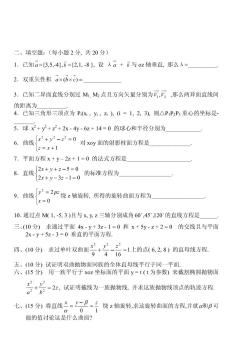 二、填空题:(每小题2分, 共20分)
1. 已知a=[3,5,4],b=[2,1,-8], 设 λa + b 与oz轴垂直, 那么λ=
2. 双重矢性积 a×(b×c)=
3. 已知二异面直线分别过 M₁, M₂ 点且方向矢量分别为v₁,v₂ ,那么两异面直线间
的距离为
4. 已知三角形三顶点为 Pᵢ(xᵢ , yᵢ , zᵢ ), (i = 1, 2, 3), 则△P₁P₂P₃ 重心的坐标是-
5. 球 x²+y²+z²+2x - 4y - 6z + 14 = 0 的球心和半径分别为
6. 曲线{x²+y²-z²=0 z=x+1 对 xoy 面的射影柱面方程是
7. 平面方程x + y - 2z + 1 = 0 的法式方程是
8. 直线{2x+y+z-5=0 2x+y-3z-1=0 的标准方程为
9. 曲线{y²=2pz x=0 绕 z 轴旋转, 所得的旋转曲面方程为
10. 通过点M( 1, -5, 3 )且与 x, y, z 三轴分别成角 60°,45°,120°的直线方程是
三.(10 分) 求通过平面 4x - y + 3z - 1 = 0 和 x + 5y - z + 2 = 0 的交线且与平面
2x - y + 5z - 3 = 0 垂直的平面方程.
四、(10 分) 求过单叶双曲面 x²/9 + y²/4 - z²/16 = 1上的点( 6, 2, 8 ) 的直母线方程.
五、(10 分) 试证明双曲抛物面同族的全体直母线平行于同一平面.
六、(15 分) 用一族平行于 xoz 坐标面的平面 y = t ( t 为参数) 来截割椭圆抛物面
x²/a² + y²/b² = 2z, 试证明截线为一族抛物线, 并求这族抛物线顶点的轨迹方程.